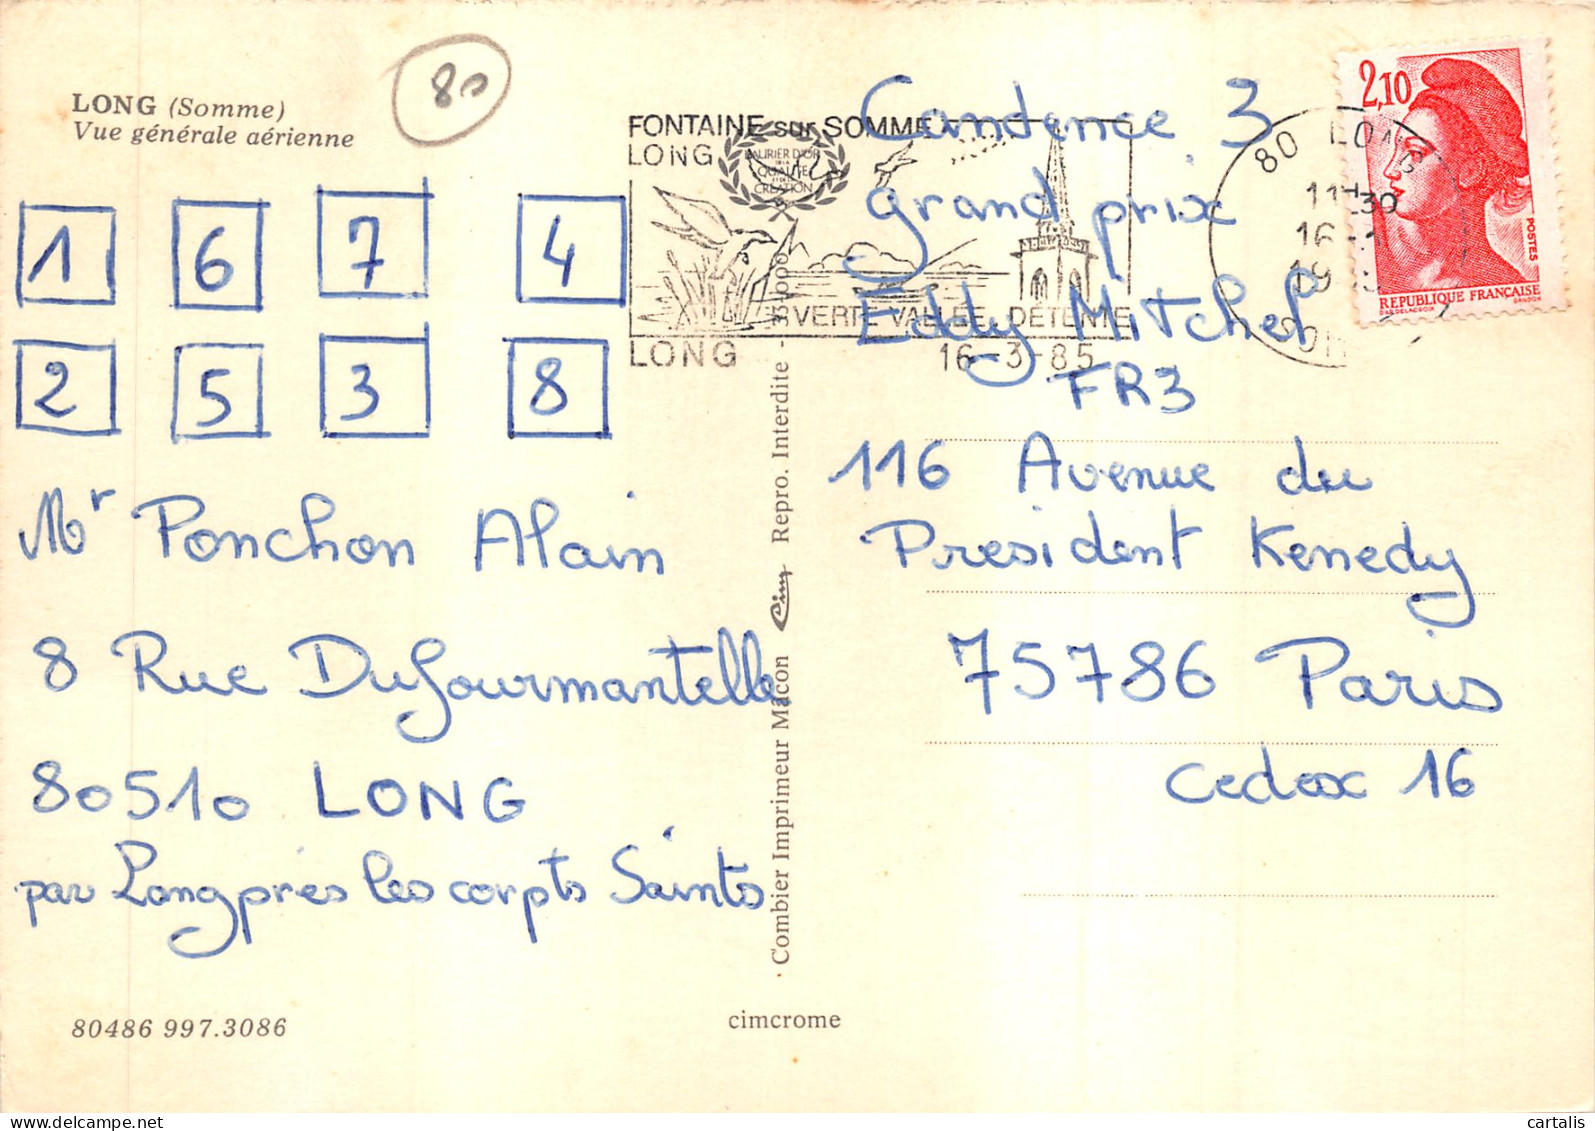 LONG (Somme)
Vue générale aérienne
80
1 6 7 4
2 5 3 8
Mr Ponchon Alain
8 Rue Dufourmantelle
80510 LONG
par Long près les corpts Saints
80486 997.3086
FONTAINE sur SOMME
LONG
LAURIER D'OR
DE LA
QUALITÉ
ET DE LA
CRÉATION
VERTE VALLÉE DÉTENTE
LONG 16-3-85
Combier Imprimeur Mâcon Cim Repro. Interdite - 35.000
cimcrome
80 LONG
11H30
16-
19
SOM
2,10
POSTES
REPUBLIQUE FRANÇAISE
GANDON
D'AP. DELACROIX
Candence 3
grand prix
Eddy Mitchel
FR3
116 Avenue du
President Kenedy
75786 Paris
cedex 16
cartalis
https://www.delcampe.net